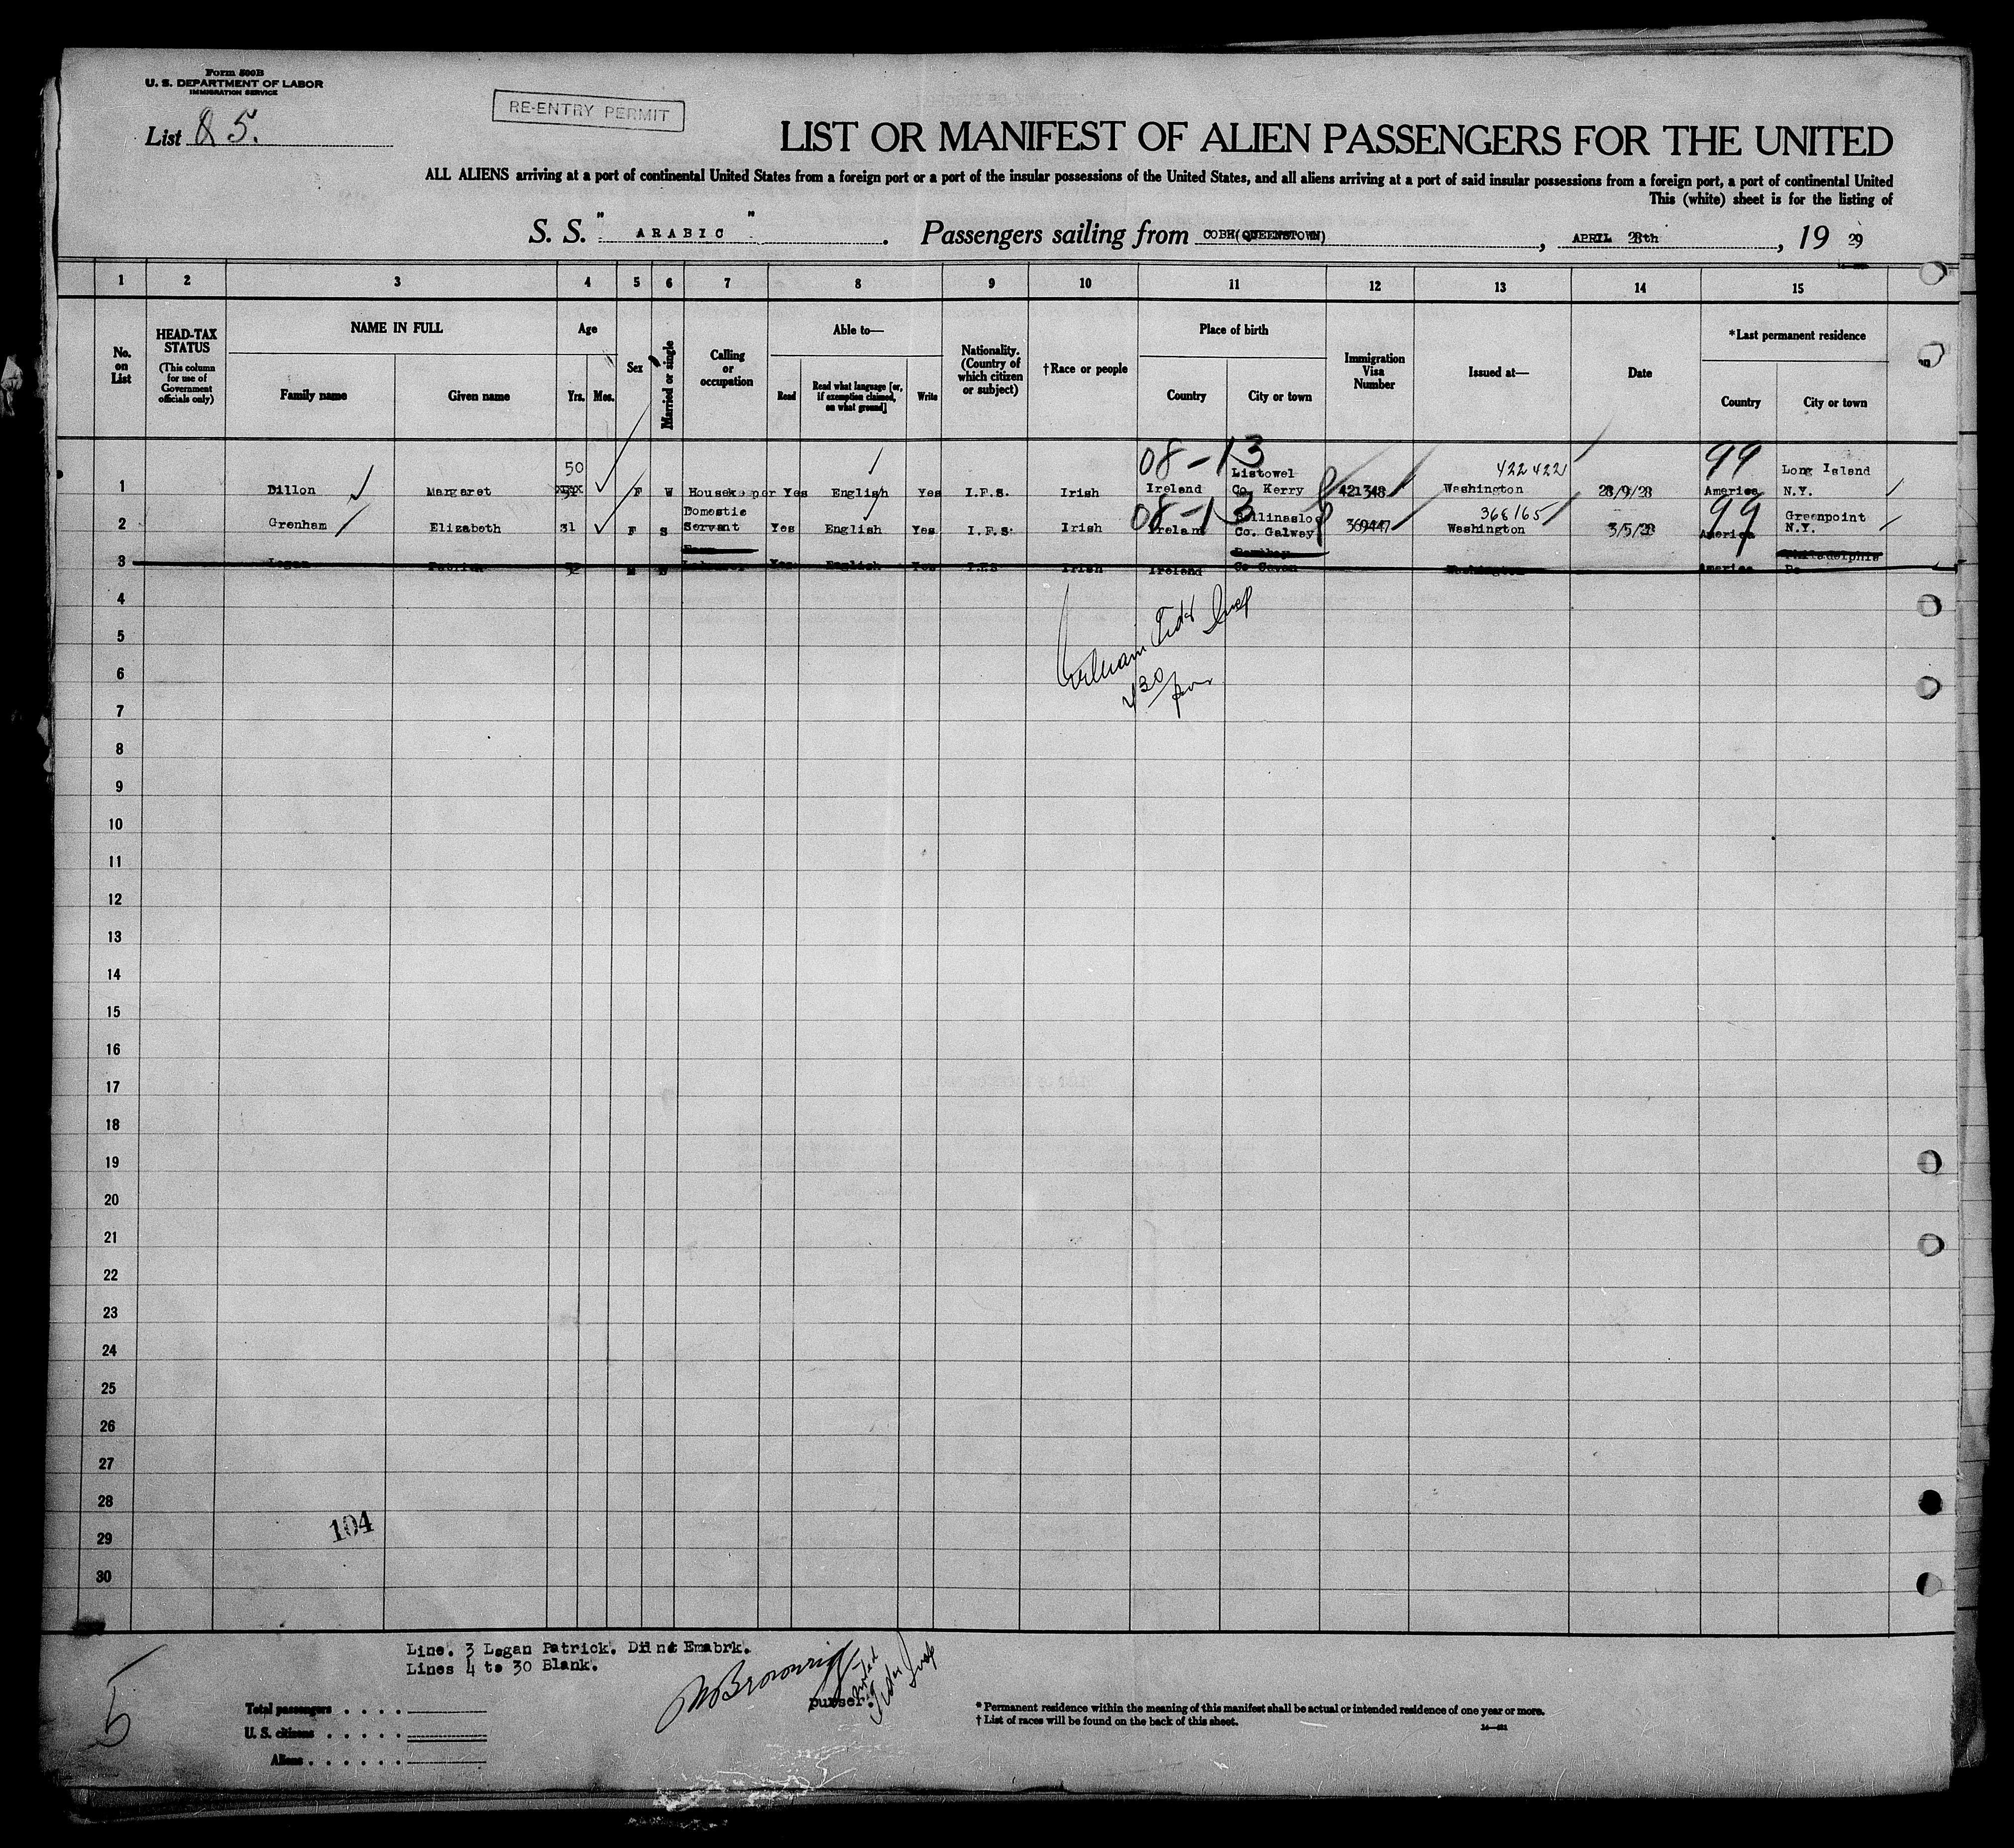 Form 500B
U. S. DEPARTMENT OF LABOR
IMMIGRATION SERVICE
RE-ENTRY PERMIT
List 85.
LIST OR MANIFEST OF ALIEN PASSENGERS FOR THE UNITED
ALL ALIENS arriving at a port of continental United States from a foreign port or a port of the insular possessions of the United States, and all aliens arriving at a port of said insular possessions from a foreign port, a port of continental United
This (white) sheet is for the listing of
S. S. " ARABIC " . Passengers sailing from COBH(QUEENSTOWN) , APRIL 28th , 19 29
1 2 3 4 5 6 7 8 9 10 11 12 13 14 15
No. on List
HEAD-TAX STATUS
(This column for use of Government officials only)
NAME IN FULL
Family name
Given name
Age
Yrs. Mos.
Sex
Married or single
Calling or occupation
Able to—
Read
Read what language [or, if exemption claimed, on what ground]
Write
Nationality. (Country of which citizen or subject)
†Race or people
Place of birth
Country
City or town
Immigration Visa Number
Issued at—
Date
*Last permanent residence
Country
City or town
50 08-13 Listowel 422422 99 Long Island
1 Dillon Margaret F W Housekeeper Yes English Yes I.F.S. Irish Ireland Co. Kerry 421348 Washington 28/9/28 America N.Y.
Domestic 08-13 Ballinasloe 368165 99 Greenpoint
2 Grenham Elizabeth 31 F S Servant Yes English Yes I.F.S. Irish Ireland Co. Galway 369447 Washington 3/5/28 America N.Y.
Farm Philadelphia
3 Logan Patrick M S Labourer Yes English Yes I.F.S Irish Ireland Co Cavan Washington America Pa
4
5
6
7
8
9
10
11
12
13
14
15
16
17
18
19
20
21
22
23
24
25
26
27
28
29
30
William
430
pm
104
Line. 3 Logan Patrick. Did not Emabrk.
Lines 4 to 30 Blank.
purser.
5
Total passengers
U. S. citizens
Aliens
* Permanent residence within the meaning of this manifest shall be actual or intended residence of one year or more.
† List of races will be found on the back of this sheet.